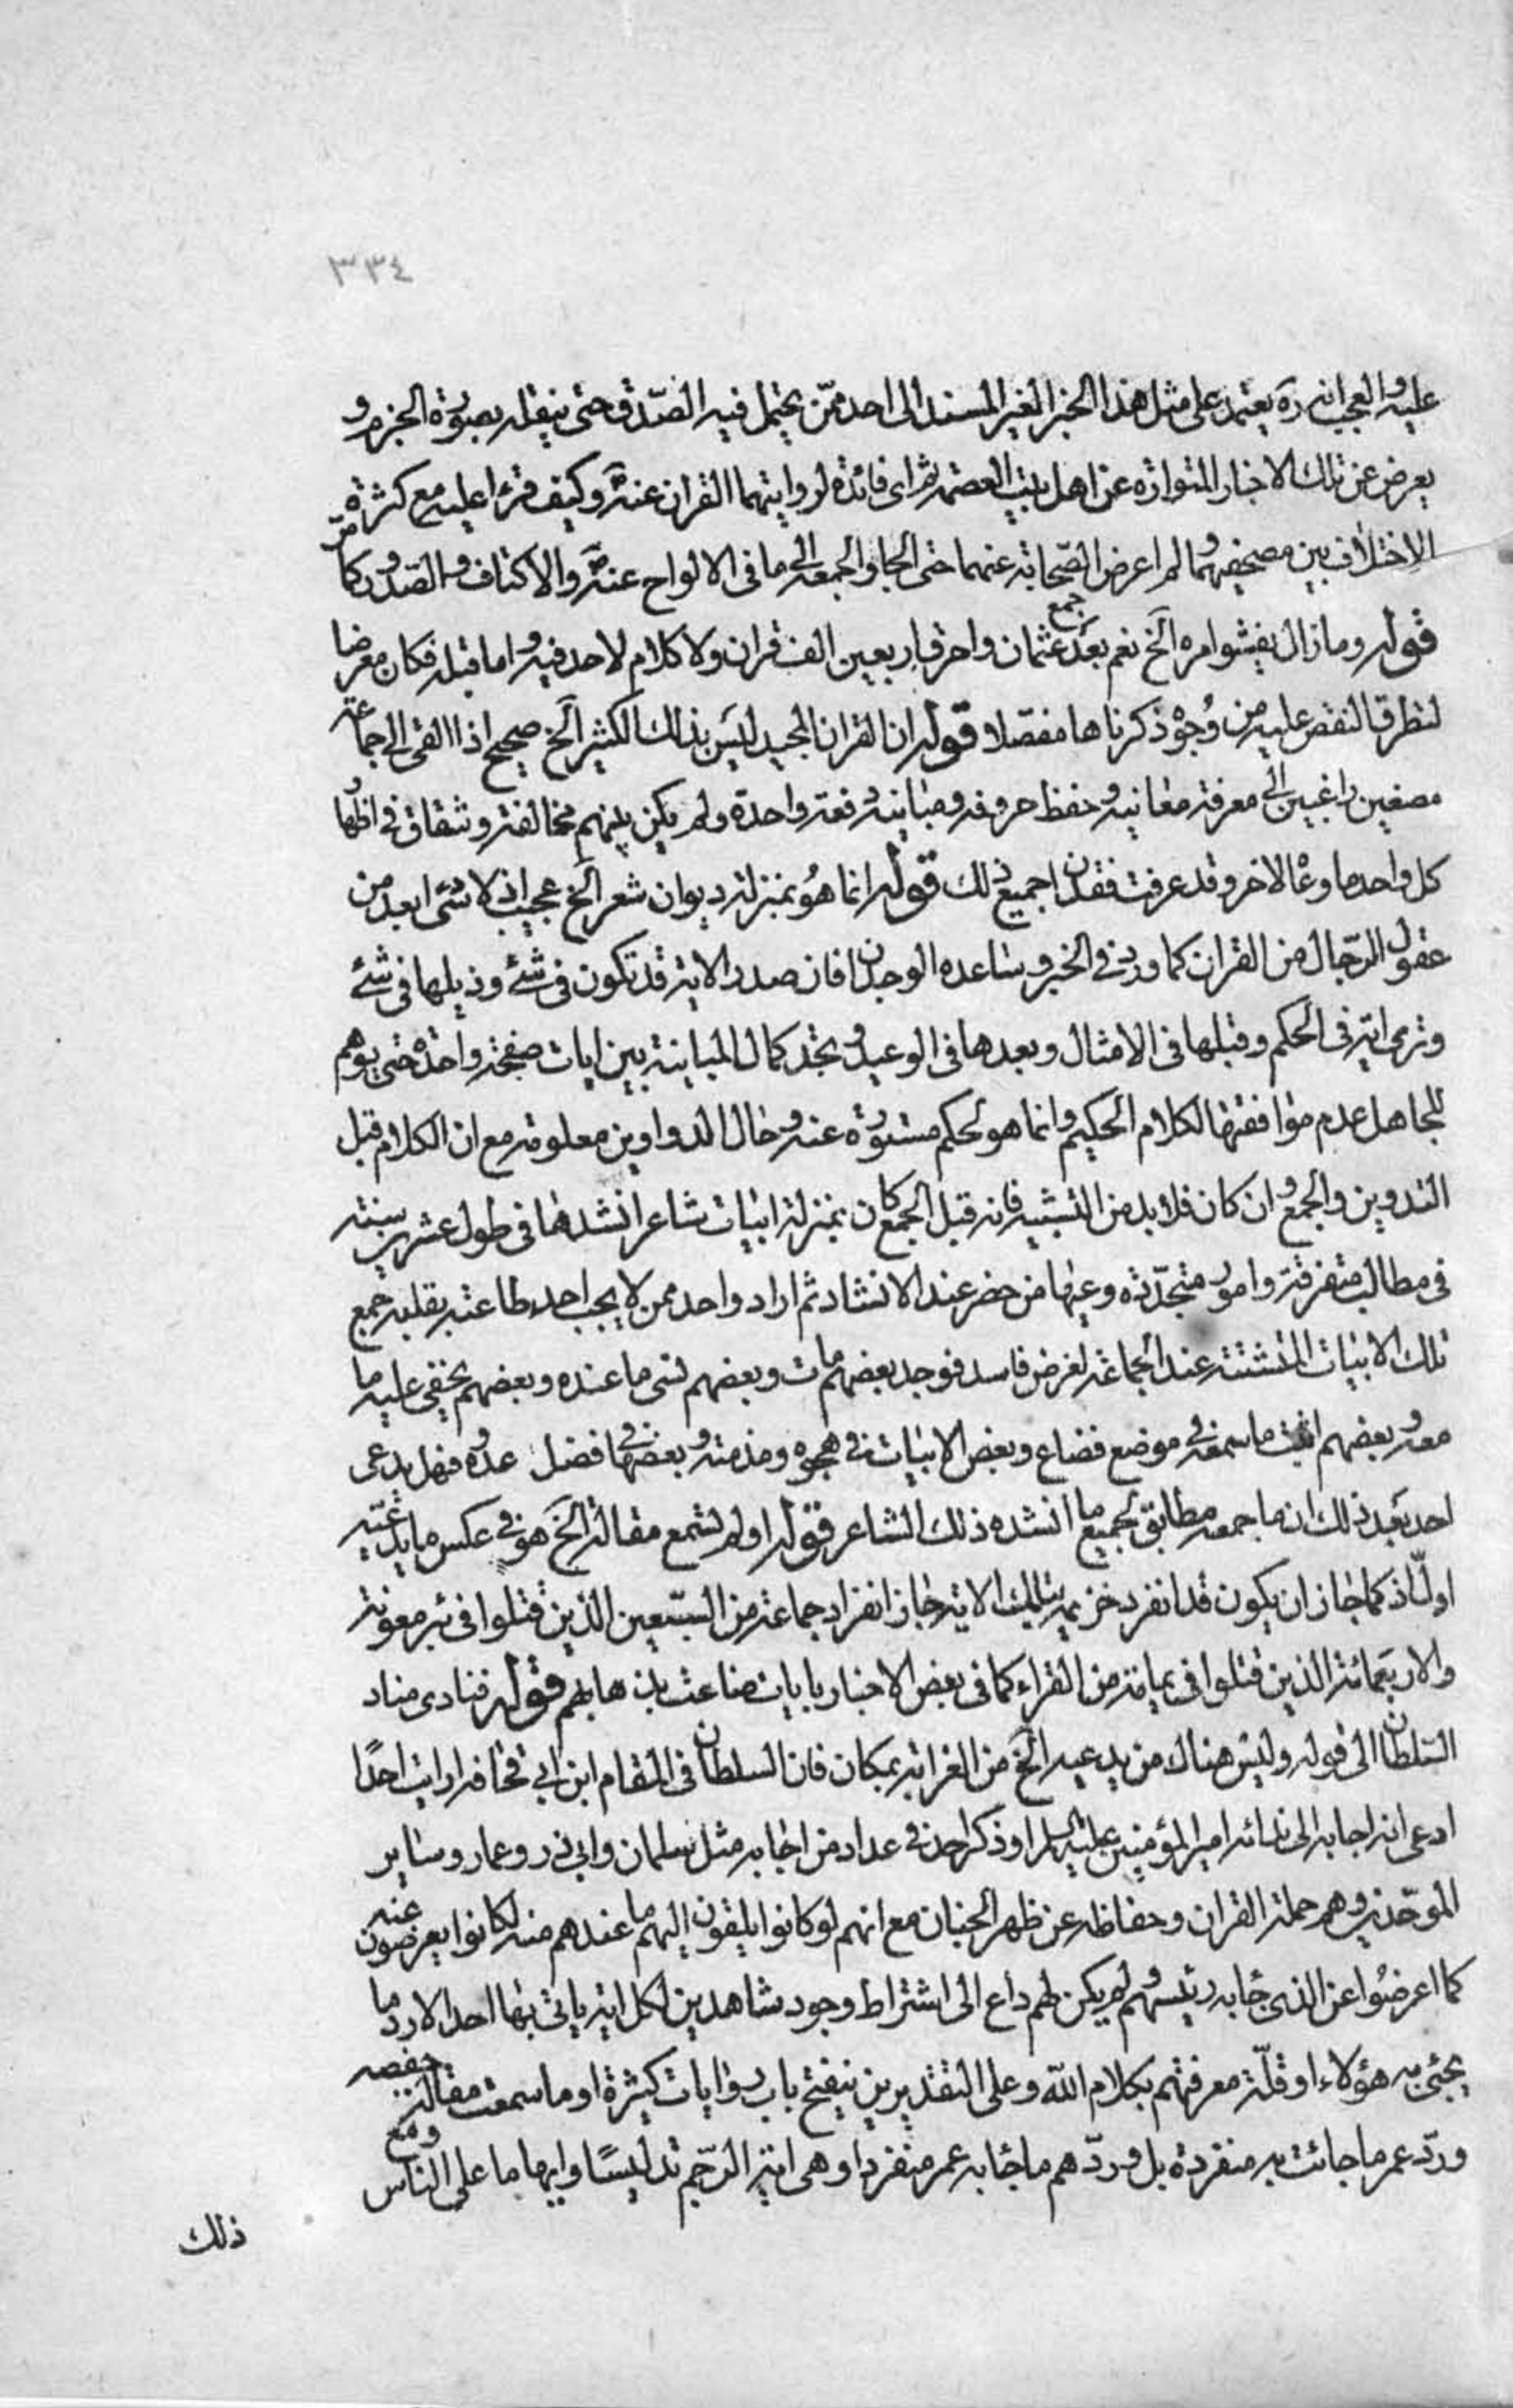 ٣٣٤
عليه والعجب انه ره يعتمد على مثل هذا الخبر الغير المسند الى احد ممّن يحتمل فيه الصّدق حتى ينقله بصورة الجزم و
يعرض عن تلك الاخبار المتواترة عن اهل بيت العصمة ثم اى فائدة لروايتهما القران عنه ص وكيف قرءا عليه مع كثرة
الاختلاف بين مصحفيهما ولم اعرض الصّحابة عنهما حتى الجاوا لجمعه الى ما فى الالواح عنه ص والاكتاف والصّدور كما مرّ
قوله وما زال يفشوا امره الخ نعم بعد جمع عثمان واحراق اربعين الف قران ولا كلام لاحد فيه واما قبله فكان معرضا
لتطرق النقص عليه من وُجوه ذكرناها مفصّلا قوله ان القران المجيد ليس بذلك الكثير الخ صحيح اذا القى الى جماعة
مصغين راغبين الى معرفة معانيه وحفظ حروفه ومبانيه دفعة واحدة ولم يكن بينهم مخالفة وشقاق فى اظهار
كل واحد ما وعاه الاخر وقد عرفت فقدان جميع ذلك قوله انما هُو بمنزلة ديوان شعر الخ عجيب اذ لا شئ ابعد من
عقول الرّجال من القران كما ورد فى الخبر ويساعده الوجدان فان صدر الاية قد تكون فى شئ وذيلها فى شئ
وترى اية فى الحكم وقبلها فى الامثال وبعدها فى الوعيد وتجد كمال المباينة بين ايات صفحة واحدة حتى يوهم
للجاهل عدم موافقتها لكلام الحكيم وانما هو لحكم مستورة عنه وحال الدواوين معلومة مع ان الكلام قبل
التدوين والجمع وان كان فلابد من التشبيه فانه قبل الجمع كان بمنزلة ابيات شاعر انشدها فى طول عشرين سنة
فى مطالب متفرقة وامور متجدّدة وعيها من حضر عند الانشاد ثم اراد واحد ممن لا يجب احد طاعته بقلبه جمع
تلك الابيات المتشتتة عند الجماعة لغرض فاسد فوجد بعضهم مات وبعضهم نسى ما عنده وبعضهم يخفى عليه ما
معه وبعضهم اثبت ما سمعه فى موضع فضاع وبعض الابيات فى هجوه ومذمته وبعضها فى فضل عدوه فهل يدعى
احد بعد ذلك ان ما جمعه مطابق لجميع ما انشده ذلك الشاعر قوله اولم تسمع مقالة الخ هو فى عكس ما يدّعيه
اولى اذ كما جاز ان يكون قد انفرد خزيمة بتلك الاية جاز انفراد جماعة من السّبعين الذين قتلوا فى بئر معونة
والاربعمائة الذين قتلوا فى يمامة من القراء كما فى بعض الاخبار بايات ضاعت بذهابهم قوله فنادى مناد
السّلطان الى قوله وليس هناك من يدعيه الخ من الغرابة بمكان فان السلطان فى المقام ابن ابى قحافة ارايت احدًا
ادعى انه اجابه الى ندائه امير المؤمنين عليه السلم او ذكر احد فى عداد من اجابه مثل سلمان وابى ذر وعمار وساير
الموحّدين وهم حملة القران وحفاظه عن ظهر الجنان مع انهم لو كانوا يلقون اليهم ما عندهم منه لكانوا يعرضون عنه
كما اعرضُوا عن الذى جاء به رئيسهم ولم يكن لهم داع الى اشتراط وجود شاهدين لكل اية ياتى بها احد الا رد ما
يجئ به هؤلاء او قلّة معرفتهم بكلام الله وعلى التقديرين ينفتح باب روايات كثيرة او ما سمعت مقالة حفصه
وردّ عمر ما جائت به منفردة بل وردّهم ما جاء به عمر منفردا وهى اية الرّجم تدليسًا وايهاما على الناس ومع
ذلك